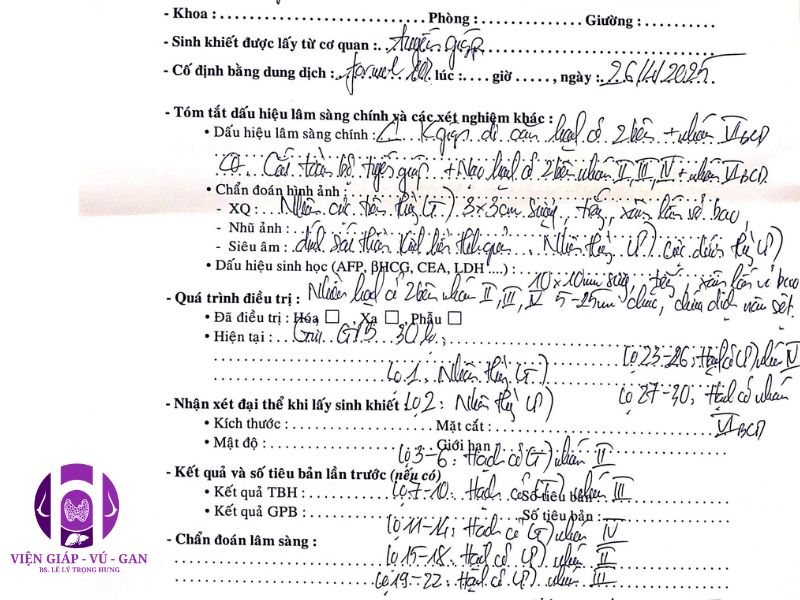 - Khoa : Phòng : Giường :
- Sinh khiết được lấy từ cơ quan : tuyến giáp
- Cố định bằng dung dịch : formol 10% lúc : giờ , ngày : 26/11/2025
- Tóm tắt dấu hiệu lâm sàng chính và các xét nghiệm khác :
• Dấu hiệu lâm sàng chính : K giáp di căn hạch cổ 2 bên + nhóm VI BCD
Cắt toàn bộ tuyến giáp + Nạo hạch cổ 2 bên nhóm II, III, IV + nhóm VI BCD
• Chẩn đoán hình ảnh :
- XQ : Nhân cực trên thùy (T) 3x3cm sượng, , xâm lấn vỏ bao,
- Nhũ ảnh :
- Siêu âm : dính sát thần kinh Nhân thùy (P) cực dưới thùy (P)
• Dấu hiệu sinh học (AFP, βHCG, CEA, LDH ....) : 10x10mm , xâm lấn vỏ bao
- Quá trình điều trị : Nhiều hạch cổ 2 bên nhóm II, III, IV 5-25mm chắc, chưa dính
• Đã điều trị : Hóa □ , Xạ □ , Phẫu □
• Hiện tại : Gửi GPB 30 lọ,
Lọ 23-26: Hạch cổ (P) nhóm IV
Lọ 1: Nhân thùy (T)
Lọ 27-30: Hạch cổ nhóm VI BCD
- Nhận xét đại thể khi lấy sinh khiết : Lọ 2: Nhân thùy (P)
• Kích thước : Mặt cắt :
• Mật độ : Giới hạn :
Lọ 3-6: Hạch cổ (T) nhóm II
- Kết quả và số tiêu bản lần trước (nếu có)
• Kết quả TBH : Số tiêu bản :
Lọ 7-10: Hạch cổ (T) nhóm III
• Kết quả GPB : Số tiêu bản :
Lọ 11-14: Hạch cổ (T) nhóm IV
- Chẩn đoán lâm sàng :
Lọ 15-18: Hạch cổ (P) nhóm II
Lọ 19-22: Hạch cổ (P) nhóm III
VIỆN GIÁP - VÚ - GAN
BS. LÊ LÝ TRỌNG HƯNG